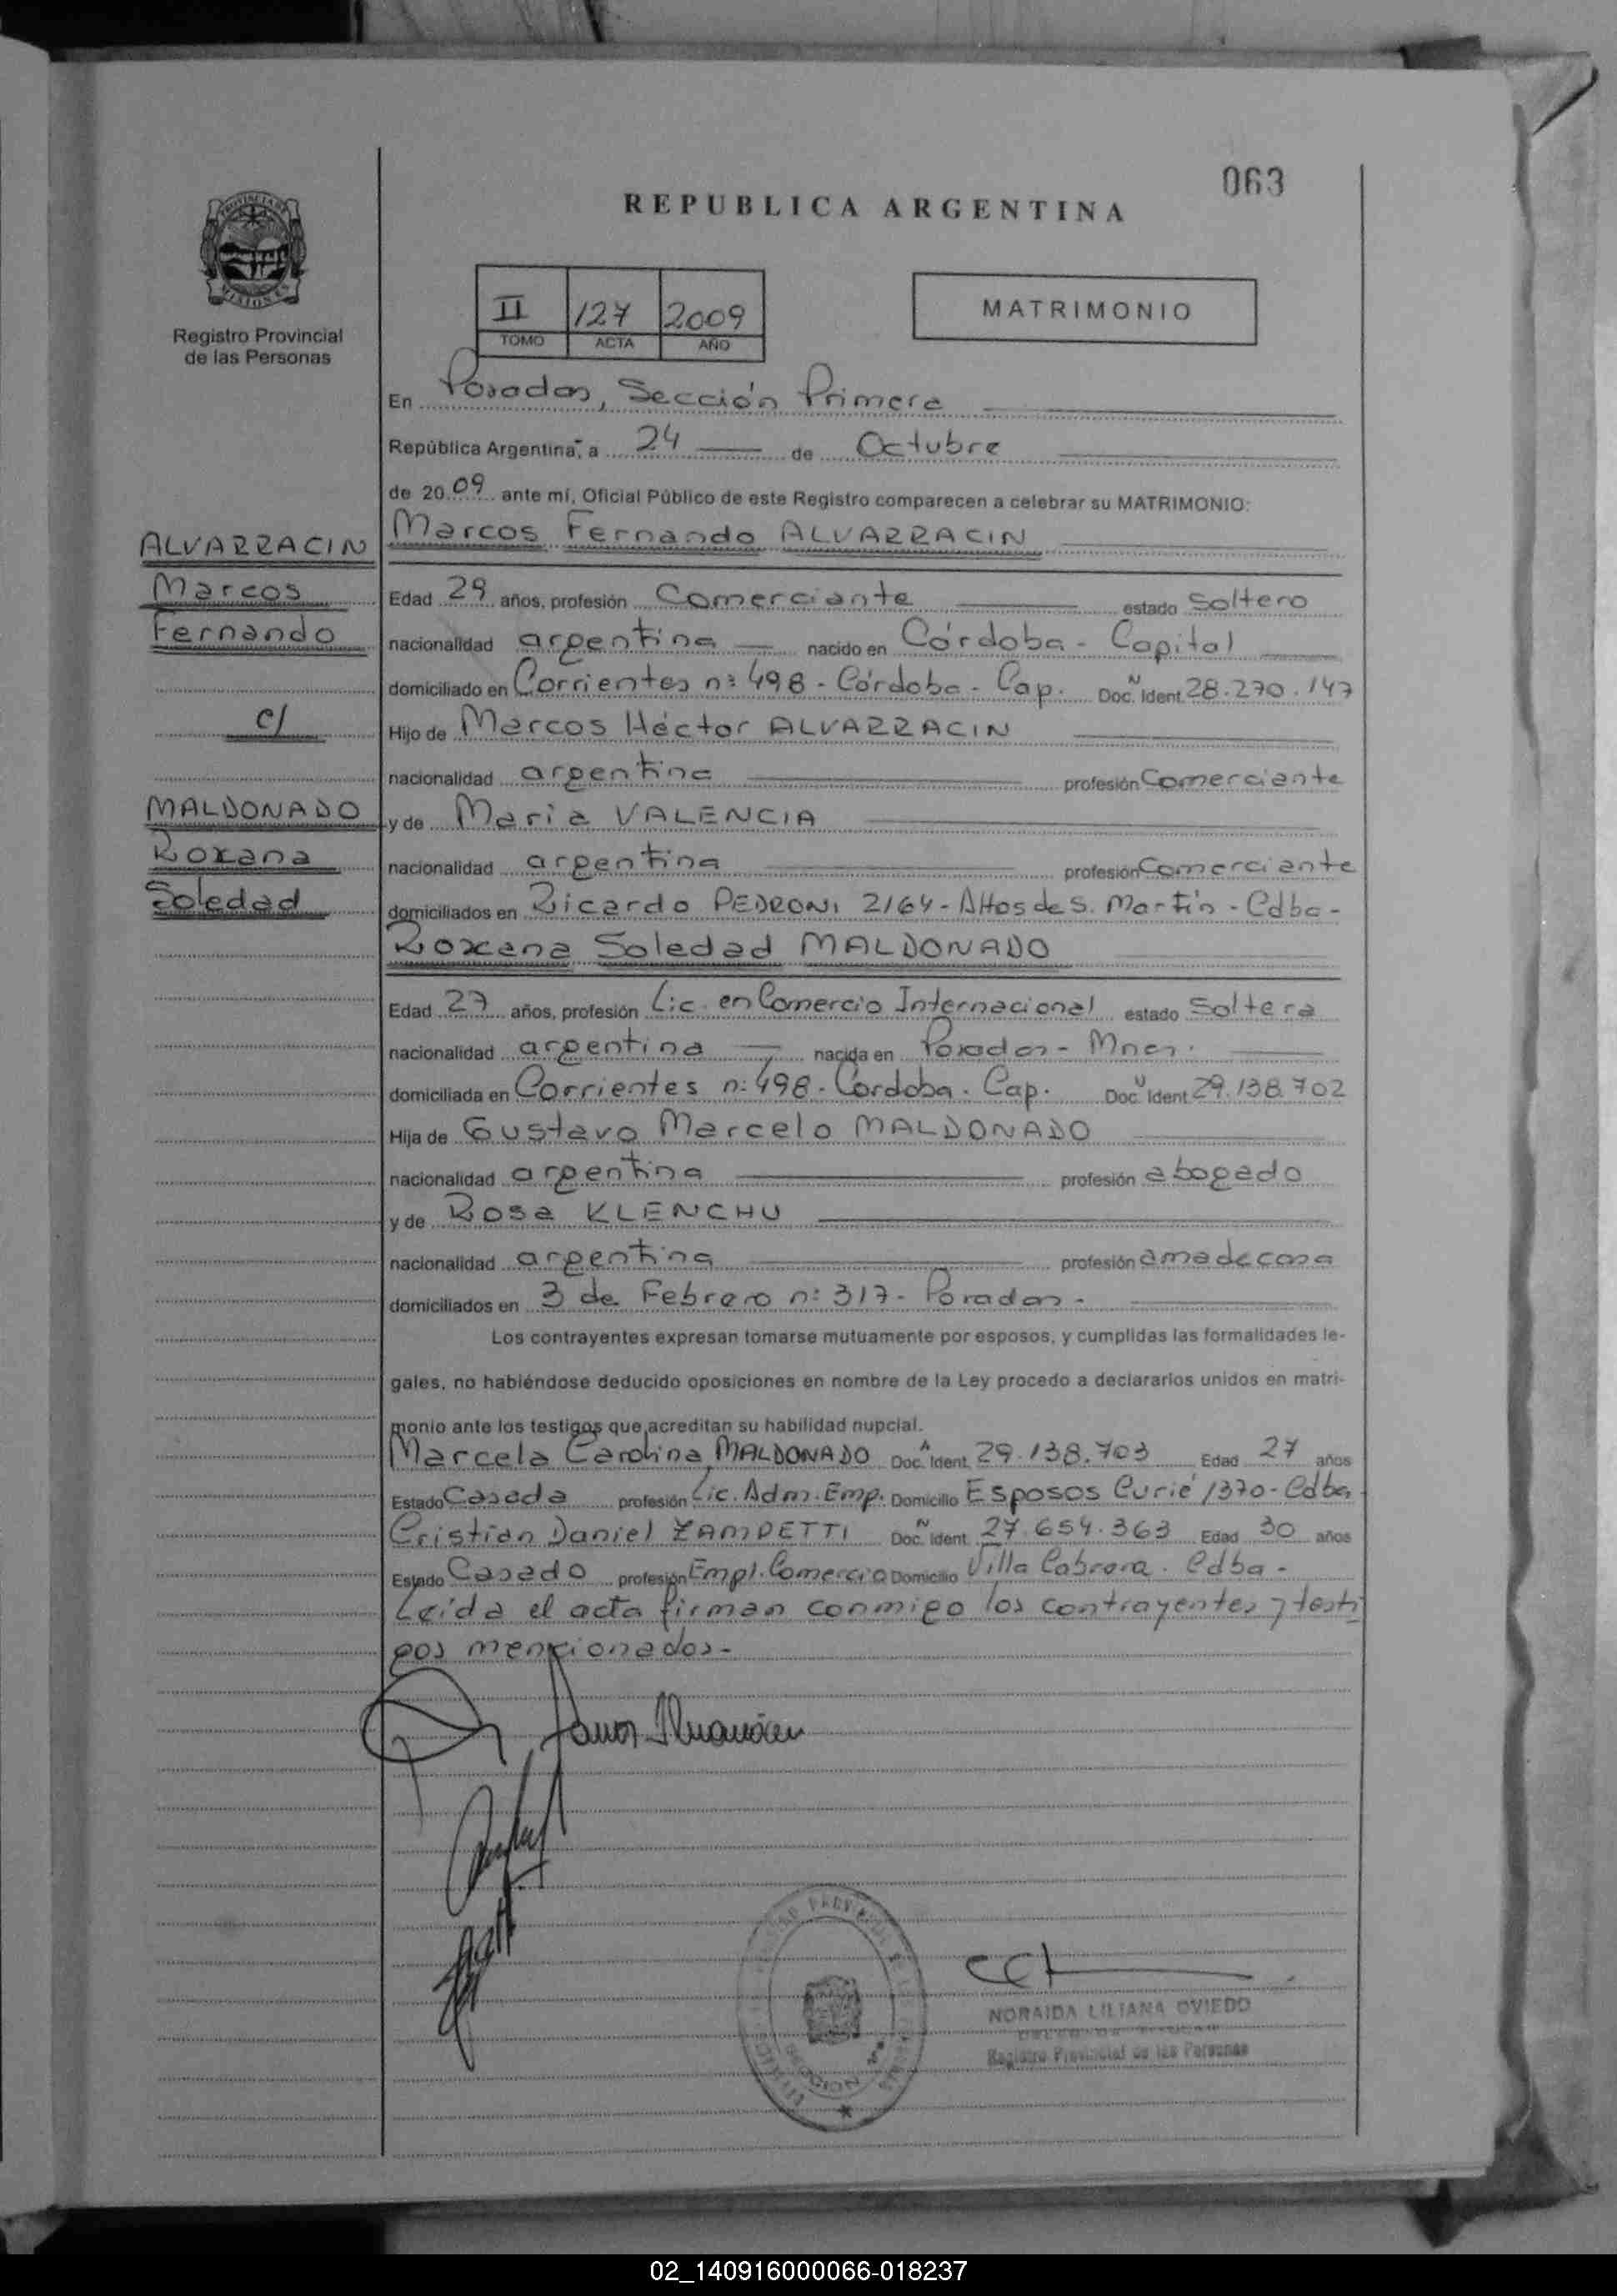 063
REPUBLICA ARGENTINA
PROVINCIA DE
MISIONES
Registro Provincial
de las Personas
II 127 2009
TOMO ACTA AÑO
MATRIMONIO
En Posadas, Sección Primera
República Argentina, a 24 de Octubre
de 2009 ante mí, Oficial Público de este Registro comparecen a celebrar su MATRIMONIO:
ALVARRACIN
Marcos
Fernando
c/
MALDONADO
Roxana
Soledad
Marcos Fernando ALVARRACIN
Edad 29 años, profesión Comerciante estado Soltero
nacionalidad argentina nacido en Córdoba - Capital
domiciliado en Corrientes nº 498 - Córdoba - Cap. Doc. Ident. N 28.270.147
Hijo de Marcos Héctor ALVARRACIN
nacionalidad argentina profesión Comerciante
y de Maria VALENCIA
nacionalidad argentina profesión Comerciante
domiciliados en Ricardo PEDRONI 2164 - Altos de S. Martín - Cdba -
Roxana Soledad MALDONADO
Edad 27 años, profesión Lic. en Comercio Internacional estado Soltera
nacionalidad argentina nacida en Posadas - Mnes.
domiciliada en Corrientes nº 498 - Córdoba - Cap. Doc. Ident N 29.138.702
Hija de Gustavo Marcelo MALDONADO
nacionalidad argentina profesión abogado
y de Rosa KLENCHU
nacionalidad argentina profesión ama de casa
domiciliados en 3 de Febrero nº 317 - Posadas -
Los contrayentes expresan tomarse mutuamente por esposos, y cumplidas las formalidades le-
gales, no habiéndose deducido oposiciones en nombre de la Ley procedo a declararlos unidos en matri-
monio ante los testigos que acreditan su habilidad nupcial.
Marcela Carolina MALDONADO Doc. Ident. N 29.138.703 Edad 27 años
Estado Casada profesión Lic. Adm. Emp. Domicilio Esposos Curié 1370 - Cdba
Cristian Daniel ZAMPETTI Doc. Ident. N 27.654.363 Edad 30 años
Estado Casado profesión Empl. Comercio Domicilio Villa Cabrera. Cdba -
Leída el acta firman conmigo los contrayentes y testi
gos mencionados -
NORAIDA LILIANA OVIEDO
Registro Provincial de las Personas
02_140916000066-018237